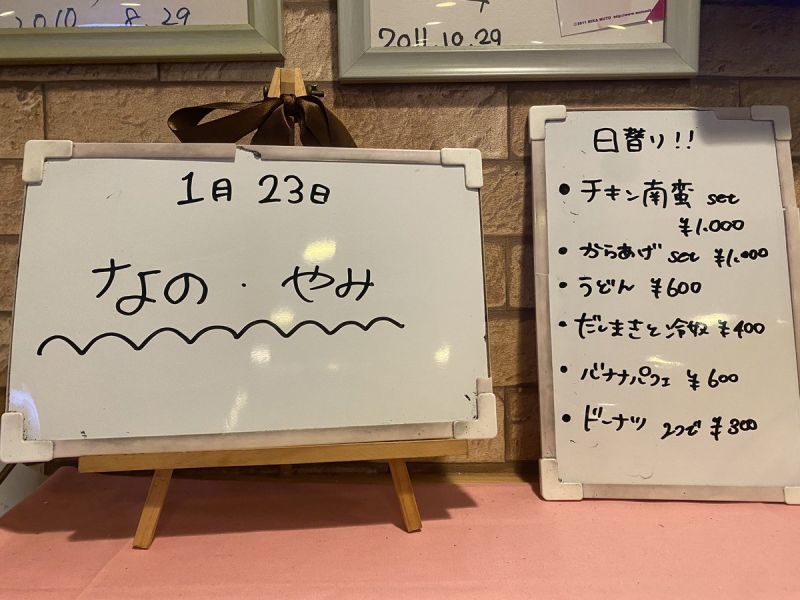 2010 8.29
2011.10.29
1月 23日
なの・やみ
日替り!!
• チキン南蛮 set
¥1.000
• からあげ set ¥1.000
• うどん ¥600
• だしまきと冷奴 ¥400
• バナナパフェ ¥600
• ドーナツ 2つで ¥300